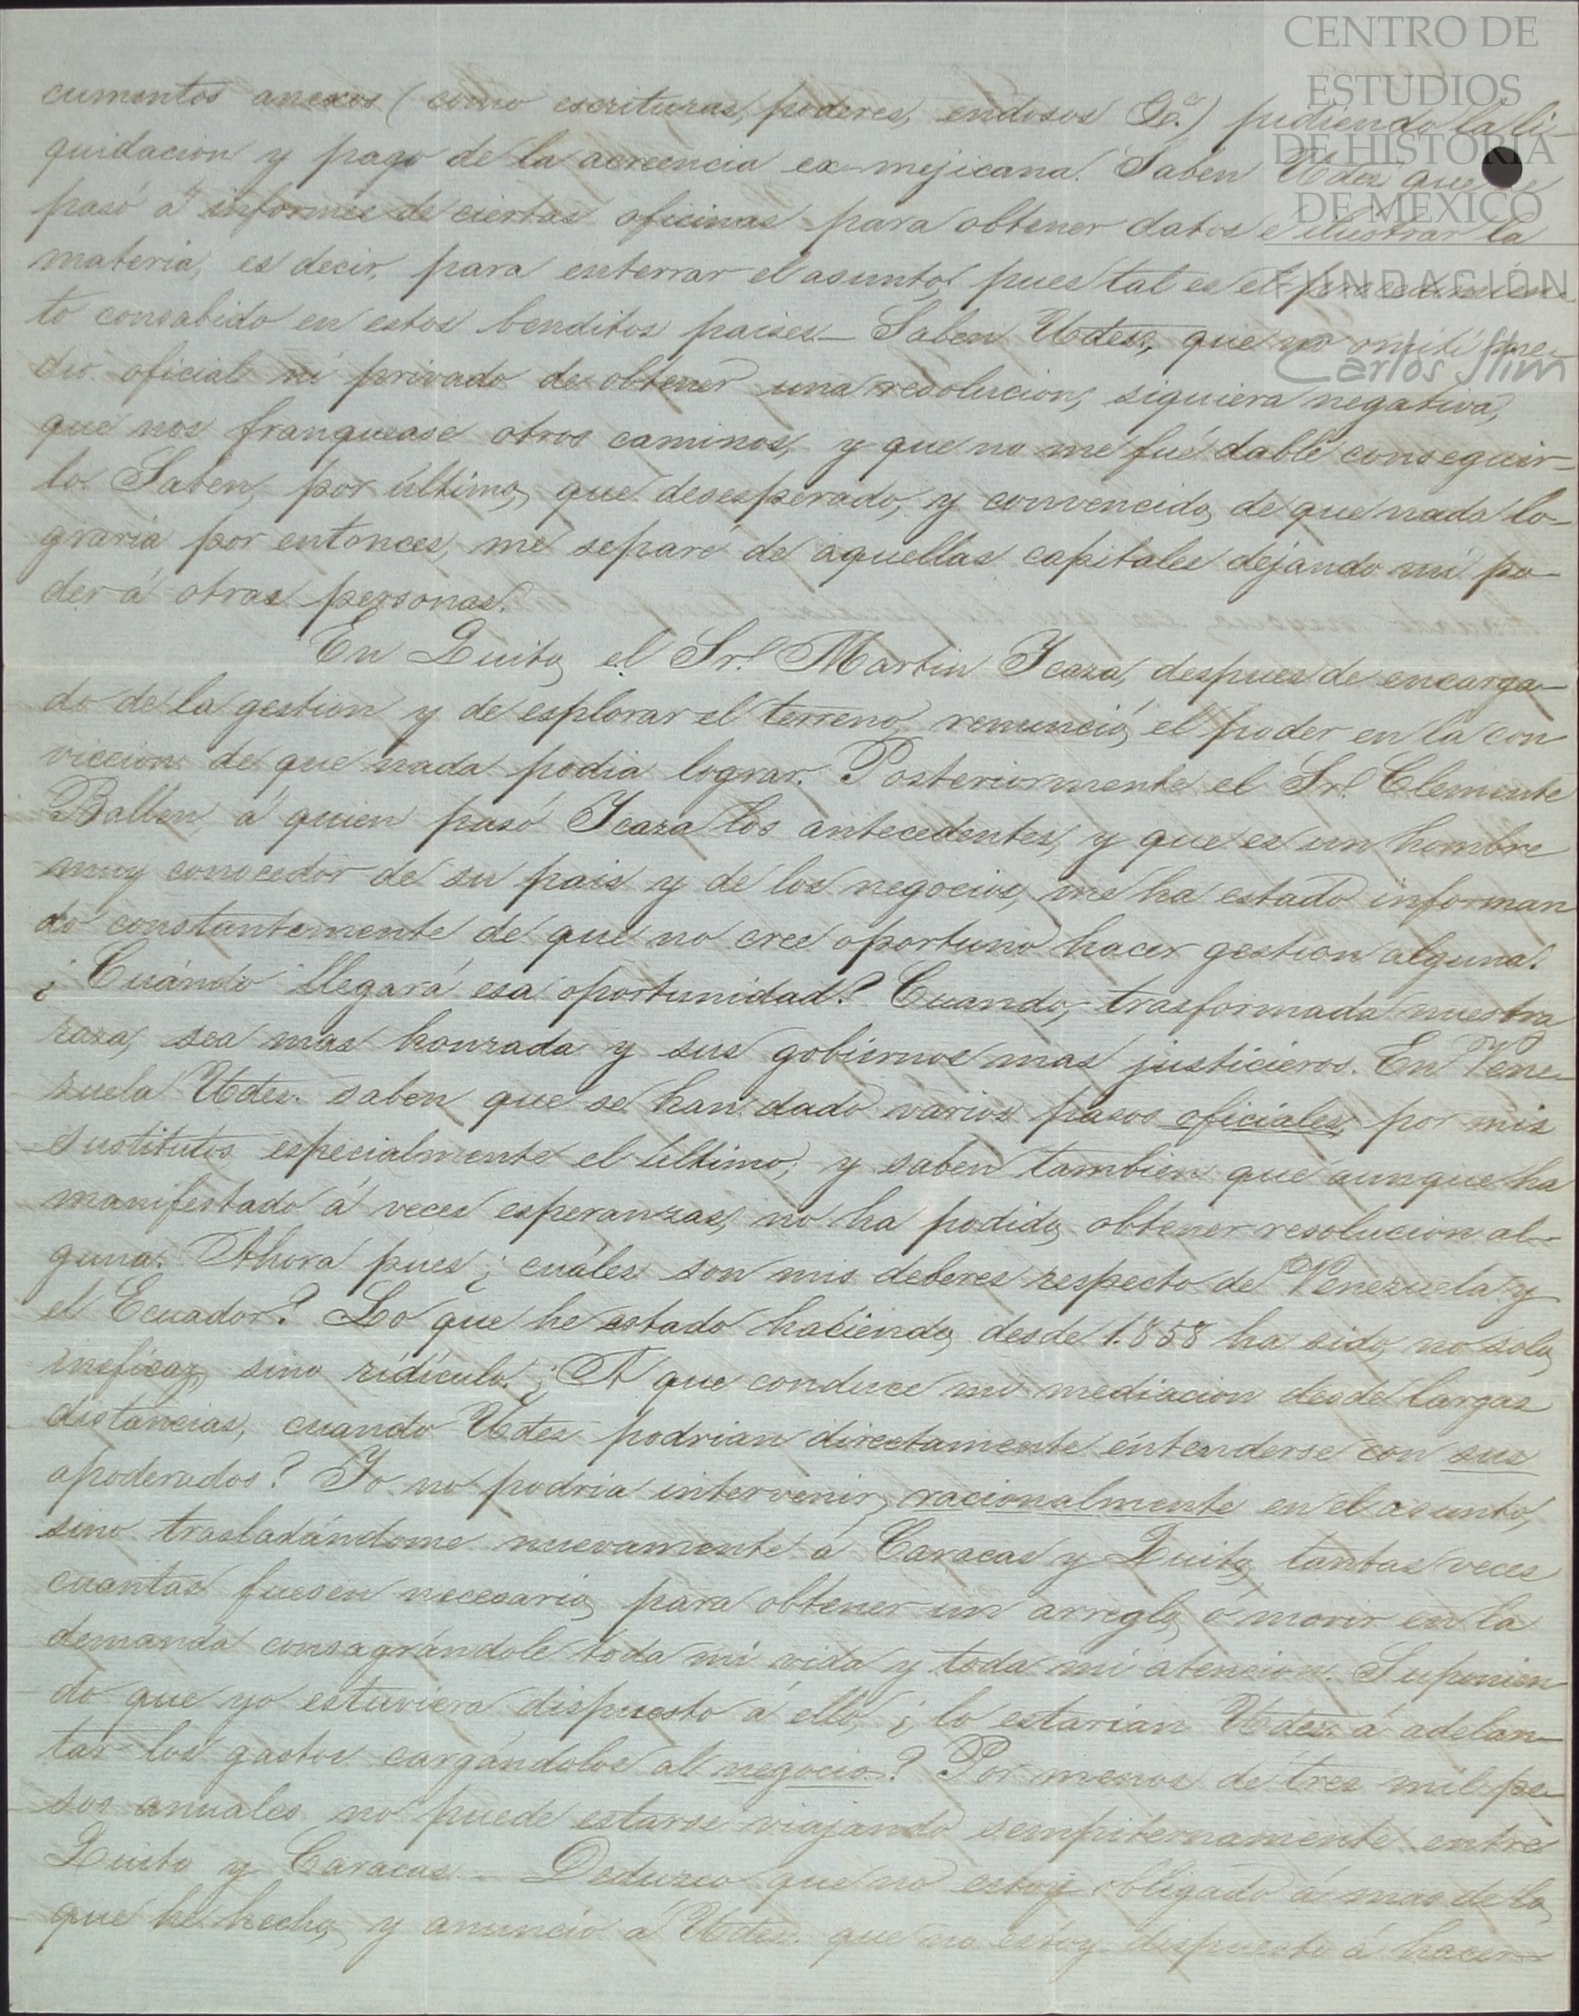 CENTRO DE
ESTUDIOS
DE HISTORIA
DE MEXICO
FUNDACIÓN
Carlos Slim
cumentos anexos (como escrituras, poderes, endosos &a.) pidiendo la li-
quidacion y pago de la acreencia ex-mejicana. Saben Udes. que se
pasó á informes de ciertas oficinas para obtener datos e ilustrar la
materia, es decir, para enterrar el asunto, pues tal es el procedimien-
to consabido en estos benditos paises.— Saben Udes., que no omití me-
dio oficial ni privado de obtener una resolucion, siquiera negativa,
que nos franquease otros caminos, y que no me fué dable conseguir-
lo. Saben, por último, que desesperado, y convencido de que nada lo-
graria por entonces, me separé de aquellas capitales dejando mi po-
der á otras personas.
En Quito, el Sr. Martin Icaza, despues de encarga-
do de la gestion y de esplorar el terreno, renunció el poder en la con
viccion de que nada podia lograr. Posteriormente el Sr. Clemente
Ballen, á quien pasó Icaza los antecedentes, y que es un hombre
muy conocedor de su pais y de los negocios, me ha estado informan
do constantemente de que no cree oportuno hacer gestion alguna.
¿Cuándo llegará esa oportunidad? Cuando, trasformada nuestra
raza, sea mas honrada y sus gobiernos mas justicieros. En Vene-
zuela Udes. saben que se han dado varios pasos oficiales, por mis
sustitutos especialmente el último; y saben tambien que aunque ha
manifestado á veces esperanzas, no ha podido obtener resolucion al-
guna. Ahora pues ¿cuáles son mis deberes respecto de Venezuela y
el Ecuador? Lo que he estado haciendo desde 1.858 ha sido, no solo
ineficaz, sino ridículo. ¿A que conduce mi mediacion desde largas
distancias, cuando Udes. podrian directamente entenderse con sus
apoderados? Yo no podria intervenir, racionalmente en el asunto,
sino trasladándome nuevamente á Caracas y Quito, tantas veces
cuantas fuesen necesario, para obtener un arreglo, ó morir en la
demanda consagrándole toda mi vida y toda mi atencion. Suponien
do que yo estuviera dispuesto á ello, ¿lo estarian Udes. á adelan-
tar los gastos cargándolos al negocio? Por menos de tres mil pe-
sos anuales no puede estarse viajando sempiternamente entre
Quito y Caracas.— Deduzco que no estoy obligado á mas de lo
que he hecho, y anuncio á Udes. que no estoy dispuesto á hacer